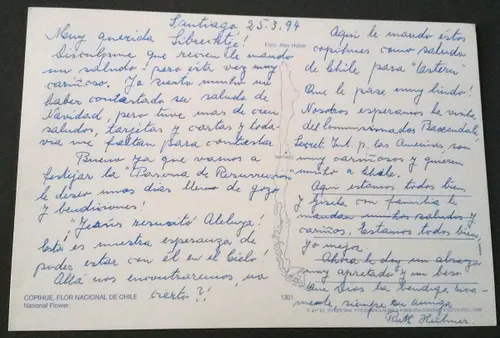 Santiago 25.3.94
Muy querida
Discúlpeme que recién le mando
un saludo! pero esta vez muy
cariñoso. Ya siento mucho no
haber contestado su saludo de
Navidad, pero tuve mas de cien
saludos, tarjetas y cartas y toda-
vía me faltan para contestar.
Bueno ya que vamos a
festejar la "Pascua de Resurrección"
le deseo unos días lleno de gozo
y bendiciones!
"Jesús resucitó Aleluya!
Esta es nuestra esperanza de
poder estar con él en el Cielo!
Allá nos encontraremos, no
cierto?!
COPIHUE, FLOR NACIONAL DE CHILE
National Flower.
Foto: Alex Huber
SANTIAGO
1301
Aquí le mando estos
copihues como saludo
de Chile para
Que le pase muy lindo!
Nosotros esperamos la visita
del Commissionados
Secret. Int. p. las Americas son
muy cariñosos y quieren
mucho a Chile.
Aquí estamos todos bien,
y Gisela con familia le
mandan muchos saludos y
cariños. Estamos todos bien,
yo mejor.
Ahora le doy un abrazo
muy apretado y un beso
Que Dios la bendiga rica-
mente, siempre su amiga
Ruth Hübner